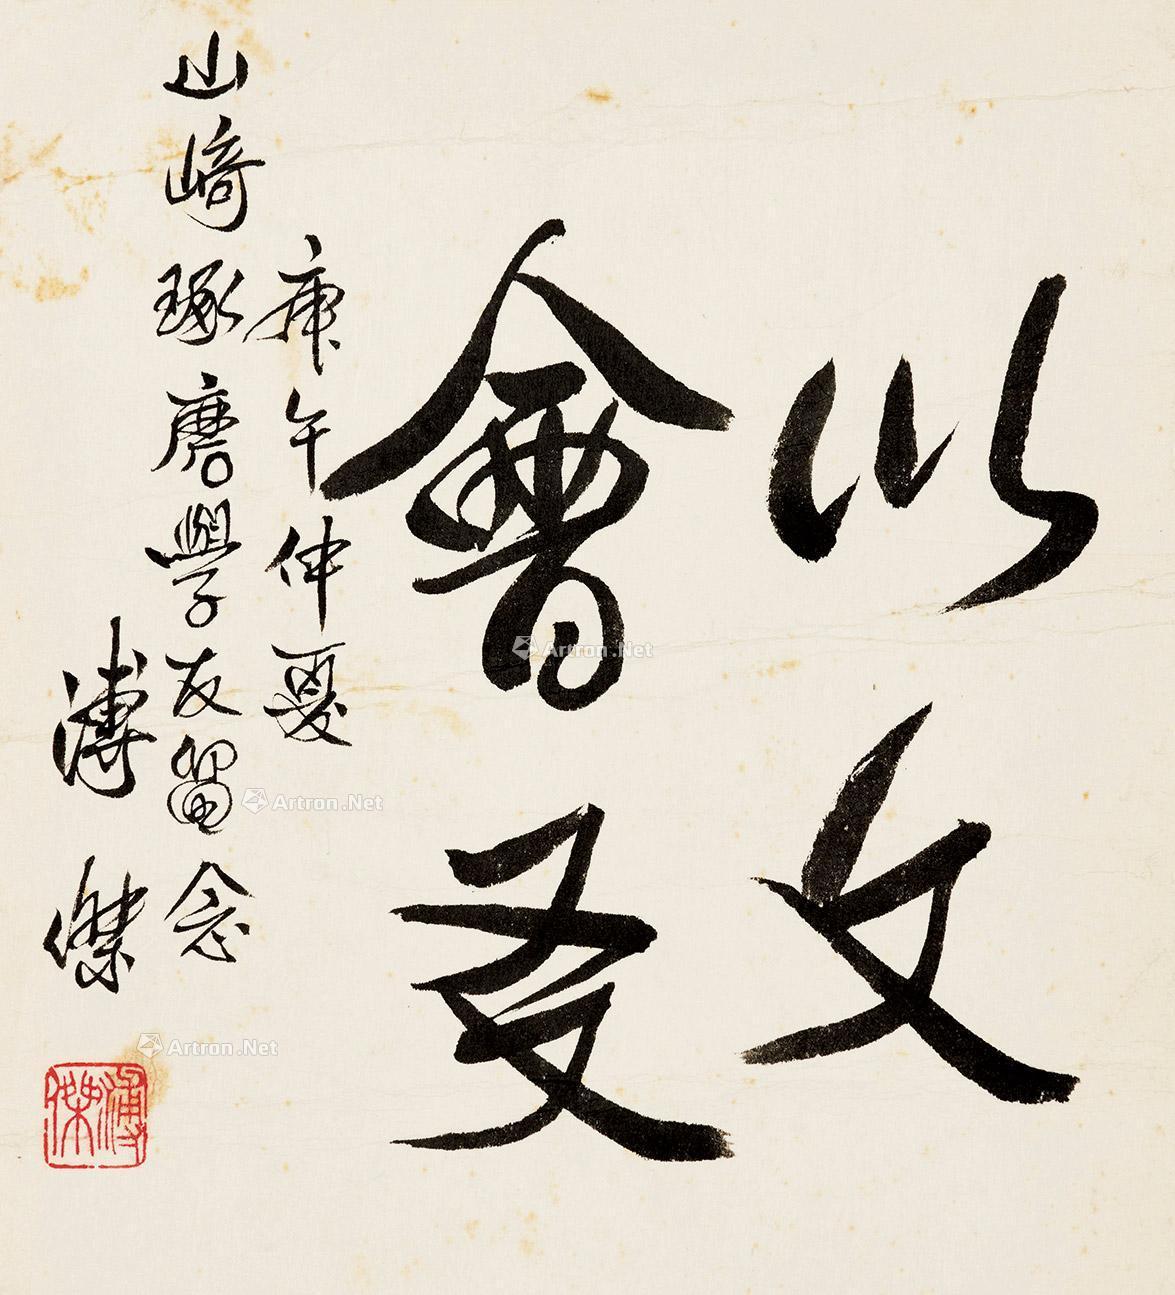 以文
會友
庚午仲夏
山﨑琢磨學友留念
溥傑
溥傑
Artron.Net
Artron.Net
Artron.Net